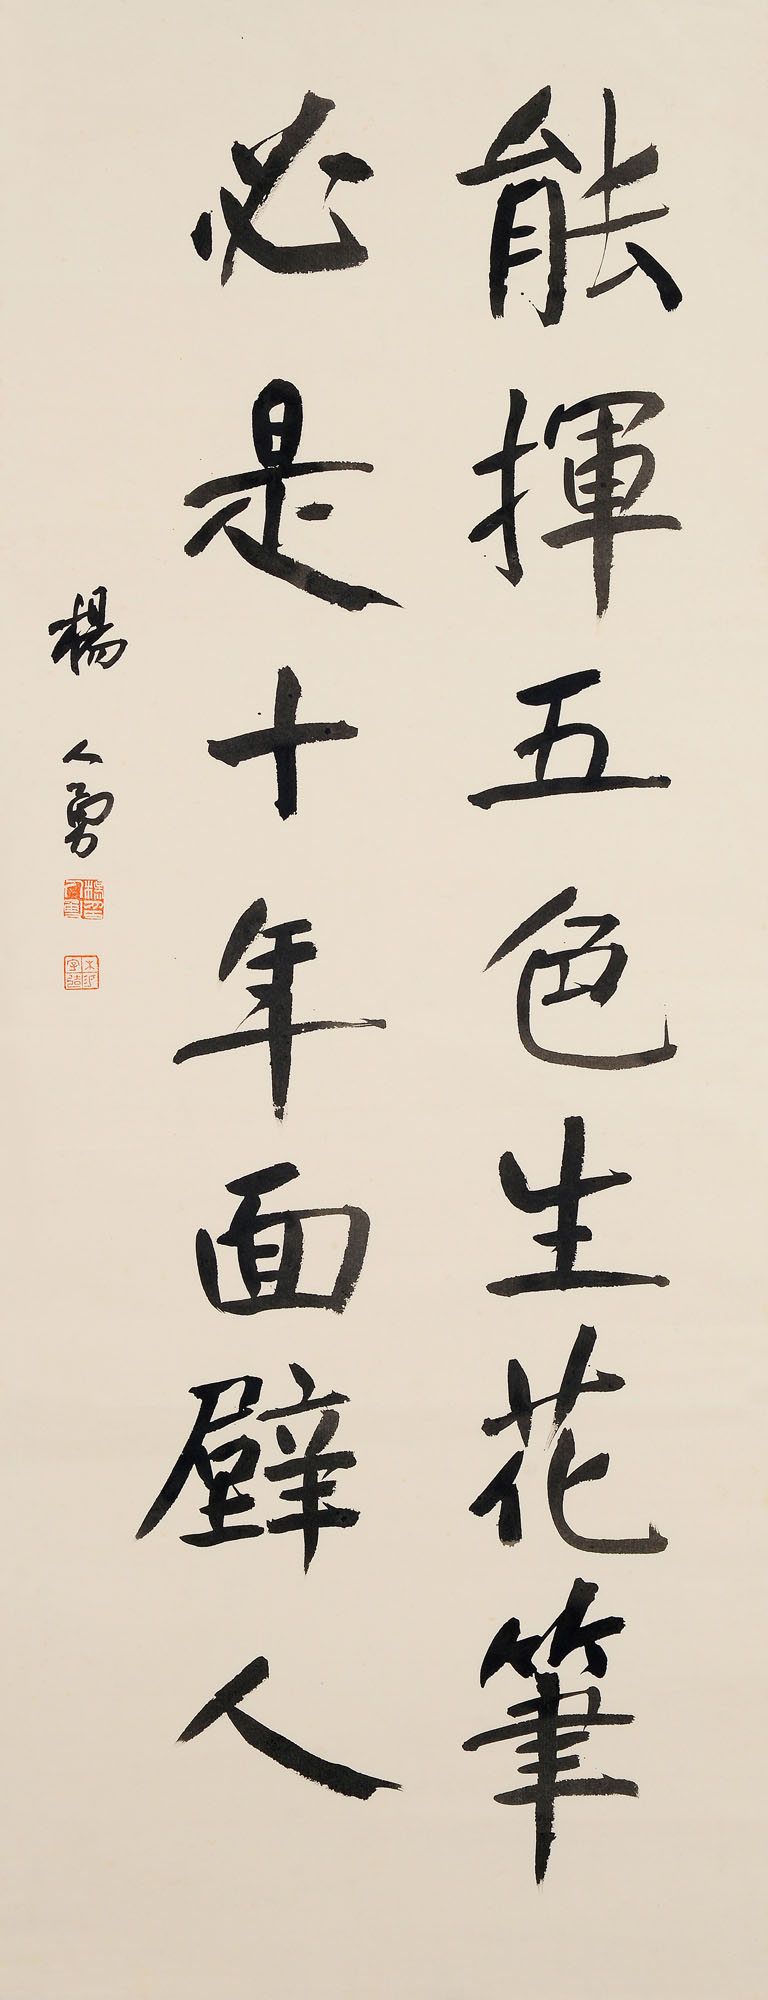 能揮五色生花筆
必是十年面壁人
楊人勇